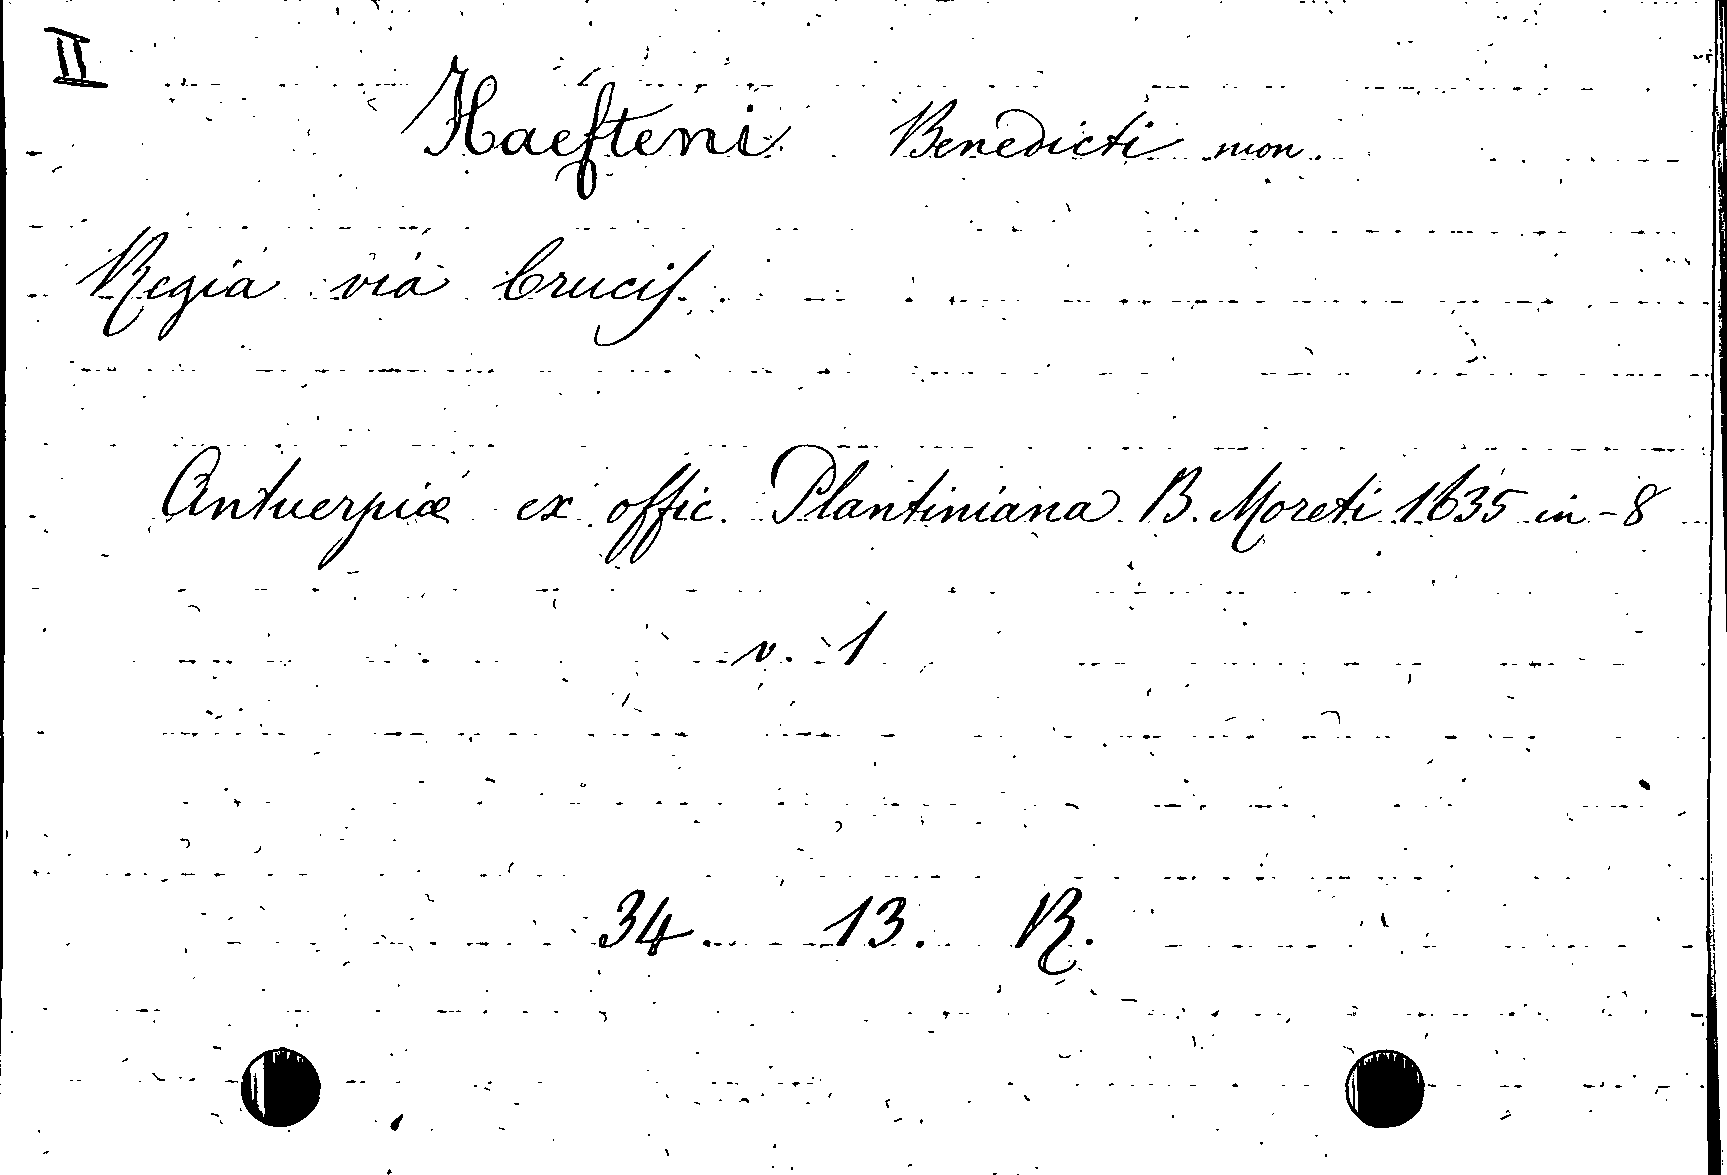 II
Haefteni Benedicti mon.
Regia via Crucis.
Antuerpiæ ex offic. Plantiniana B. Moreti 1635 in-8
v. 1
34. 13. R.